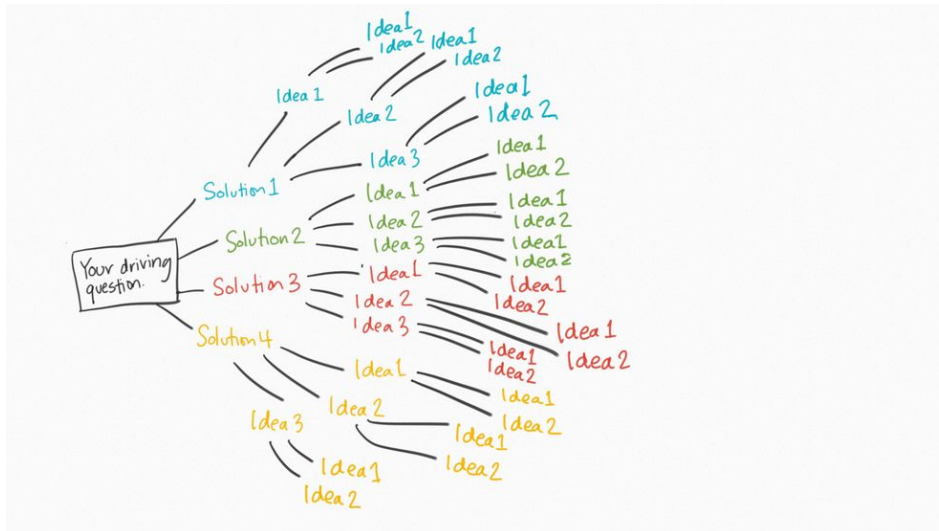 Your driving
question.
Solution1
Idea1
Idea1
Idea2
Idea2
Idea1
Idea2
Idea3
Idea1
Idea2
Solution2
Idea1
Idea1
Idea2
Idea2
Idea1
Idea2
Idea3
Idea1
Idea2
Solution3
Idea1
Idea1
Idea2
Idea2
Idea1
Idea2
Idea3
Idea1
Idea2
Solution4
Idea1
Idea1
Idea2
Idea2
Idea1
Idea2
Idea3
Idea1
Idea2